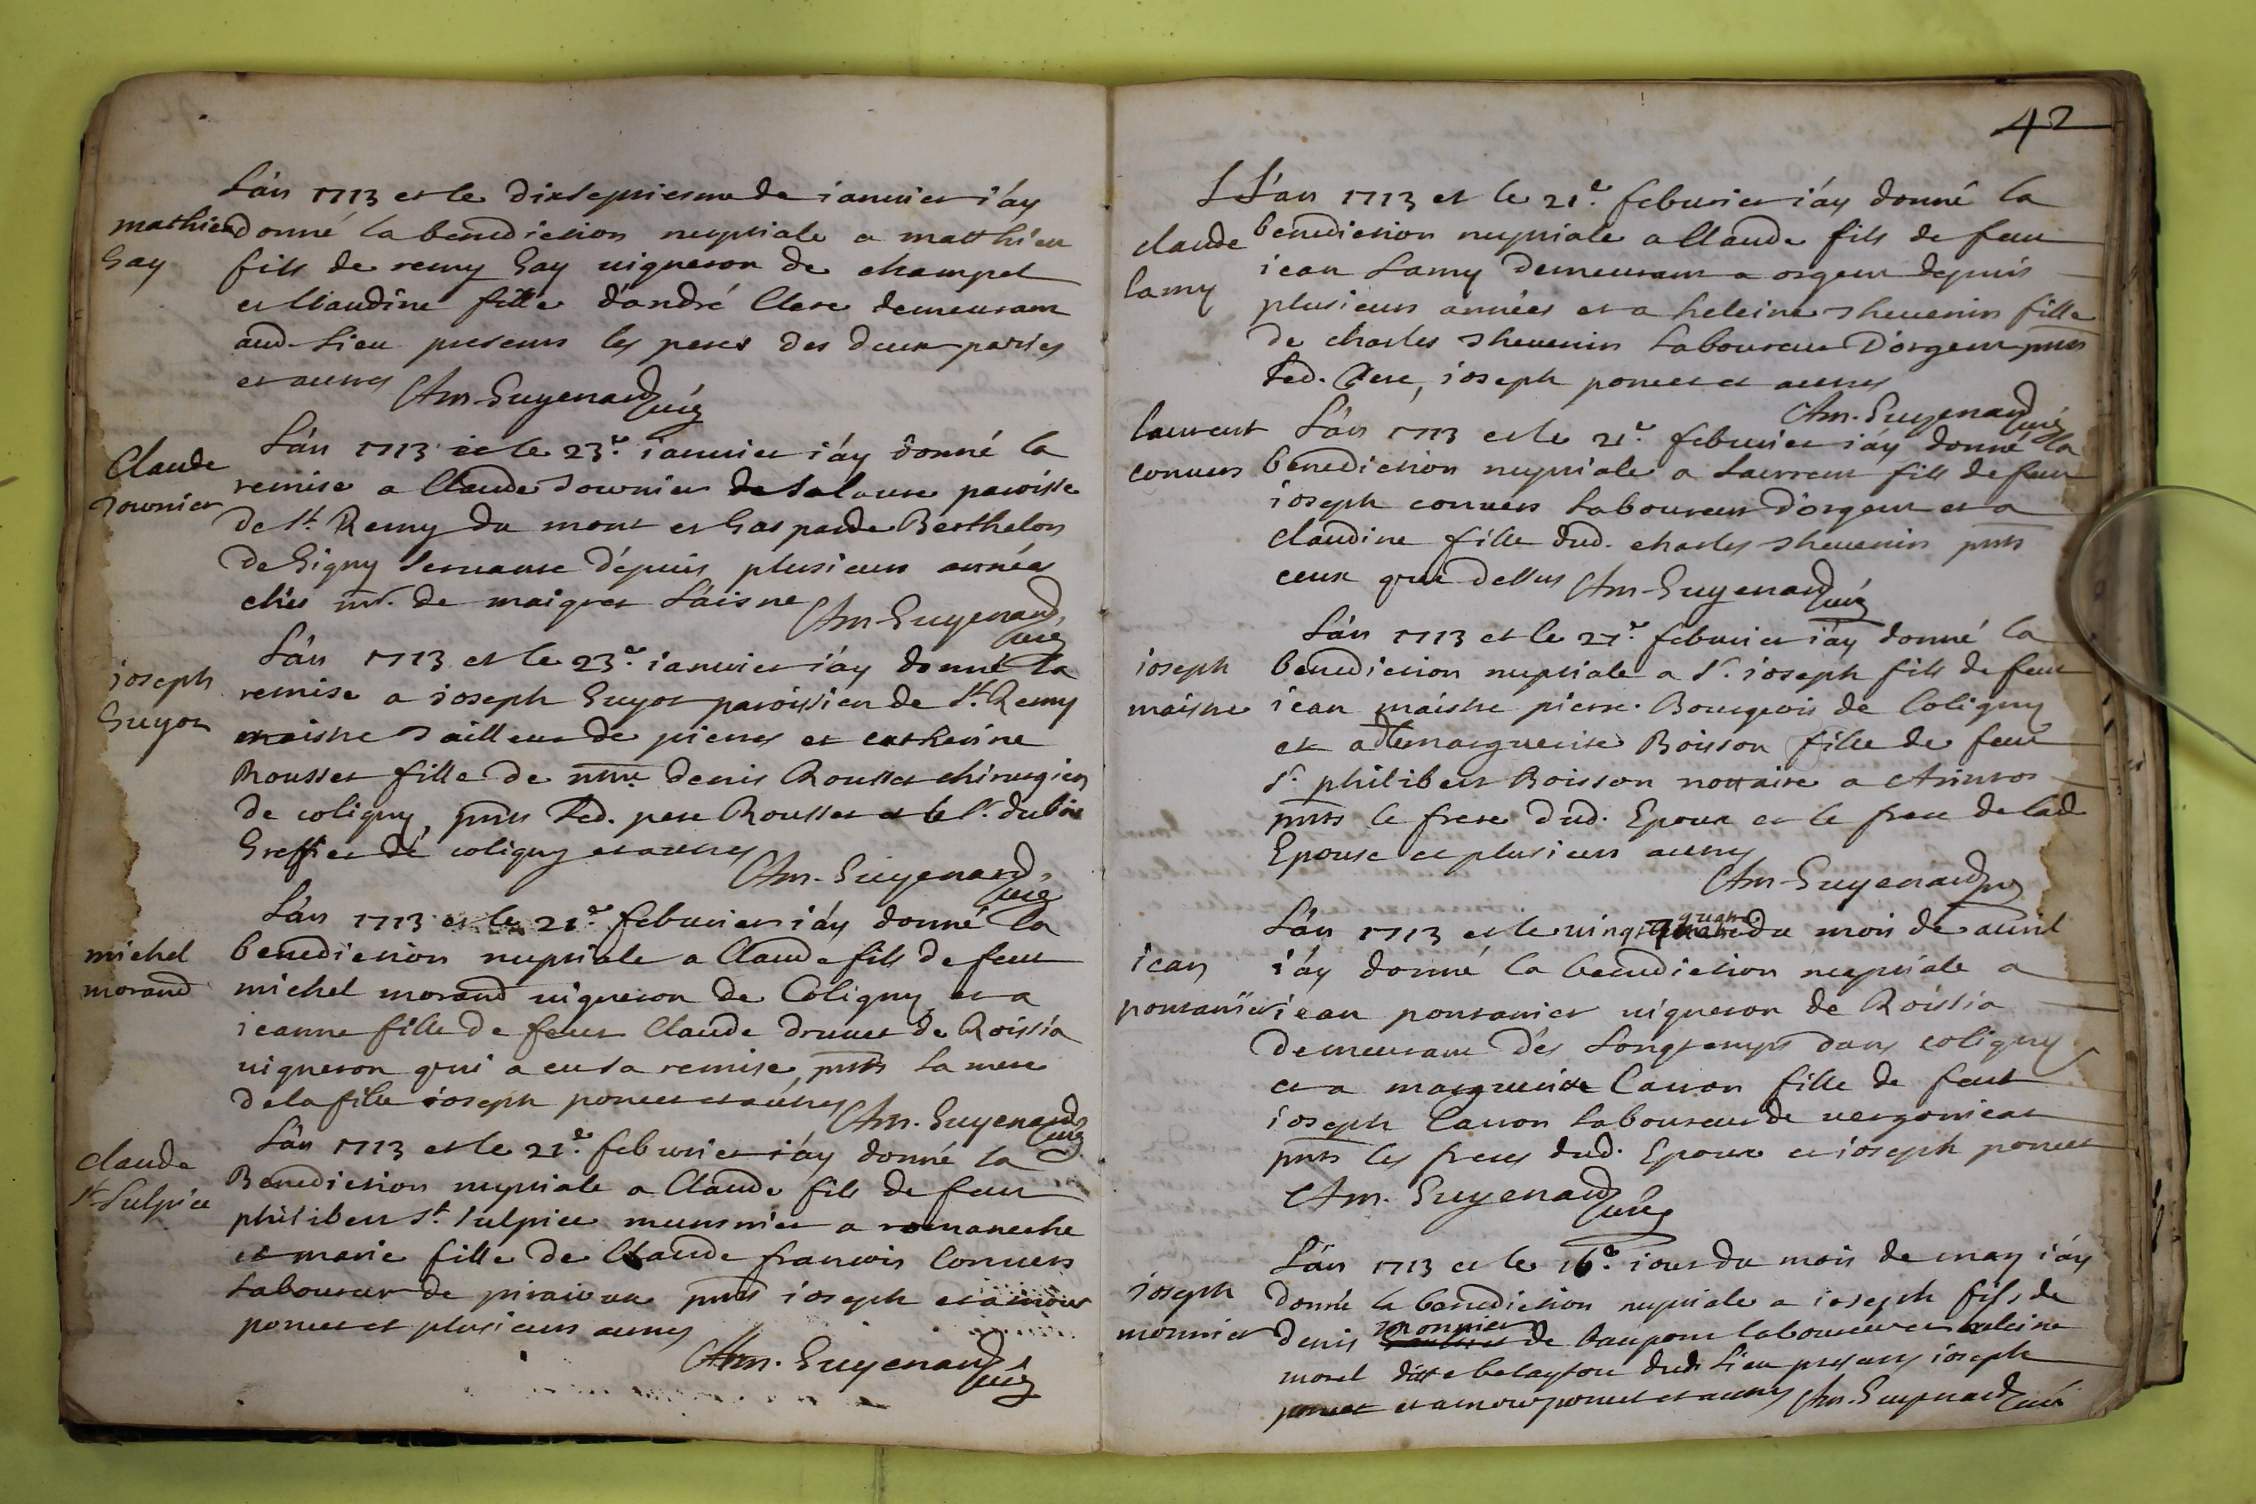 L'an 1713 et le dixseptiesme de ianuier i'áy
mathieu
Gay
donné la benediction nuptiale a matthieu
fils de remy Gay uigneron de champel
et Claudine fille d'andré Clere demeurant
aud. Lieu presents les peres des deux parties
et autres Am. Guyenard curé
Claude
Tournier
L'an 1713 et le 23.e ianuier i'áy donné la
remise a Claude Tournier de paroisse
de St. Remy du mont et Gasparde Berthelon
de Gigny seruante dépuis plusieurs années
chés mr. de maigret L'aisne Am. Guyenard,
curé
ioseph
Guyot
L'an 1713 et le 23.e ianuier i'áy donné la
remise a ioseph Guyot paroissien de St. Remy
maistre Tailleur de pierres et catherine
Rousset fille de denis Rousset chirurgien
de coligny, pnts Led. pere Rousset et le Sr. dubois
Greffier de coligny et autres
Am. Guyenard,
curé
michel
morand
L'an 1713 et le 21.e feburier i'áy donné la
benediction nuptiale a Claude fils de feu
michel morand uigneron de Coligny et a
ieanne fille de feu Claude druuet de Roissia
uigneron qui a eu sa remise, pnts La mere
de la fille ioseph poncet et autres Am. Guyenard
curé
claude
St. Sulpice
L'an 1713 et le 21.e feburier i'áy donné la
Benediction nuptiale a Claude fils de feu
philibert St. Sulpice meusnier a romaneche
et marie fille de Claude francois Conuers
Laboureur de pirajoux pnts ioseph et amour
poncet et plusieurs autres
Am. Guyenard
curé
42
L L'an 1713 et le 21.e feburier i'áy donné la
claude
lamy
benediction nuptiale a Claude fils de feu
iean Lamy demeurant a orgeur depuis
plusieurs années et a heleine Theuenin fille
de charles Theuenin Laboureur D'orgeur pnts
Led. Clere, ioseph poncet et autres
Am. Guyenard
curé
laurent
conuers
L'an 1713 et le 21.e feburier i'áy donné la
benediction nuptiale a Laurent fils de feu
ioseph conuers Laboureur D'orgeur et a
claudine fille dud. charles Theuenin pnts
ceux que dessus Am. Guyenard curé
ioseph
maistre
L'an 1713 et le 27.e feburier i'áy donné la
benediction nuptiale a Sr. ioseph fils de feu
iean maistre pierre. Bourgeois de Coligny
et a dlle marguerite Boisson fille de feu
Sr. philibert Boisson nottaire a
pnts le frere dud. Epoux et le frere de lad
Epouse et plusieurs autres
Am. Guyenard curé
quatre
L'an 1713 et le uingt du mois de auril
iean
pontanier
i'áy donné la benediction nuptiale a
iean pontanier uigneron de Roissia
demeurant dés Longtemps dans coligny
et a marguerite Carron fille de feu
ioseph Carron Laboureur de uergonicat
pnts les freres dud. Epoux et ioseph poncet
Am. Guyenard curé
ioseph
monnier
L'an 1713 et le 16.e iour du mois de may i'áy
donné la benediction nuptiale a ioseph fils de
monnier
denis de laboureur et heleine
morel ditte dud. Lieu presents ioseph
poncet et amour poncet et autres Am. Guyenard curé